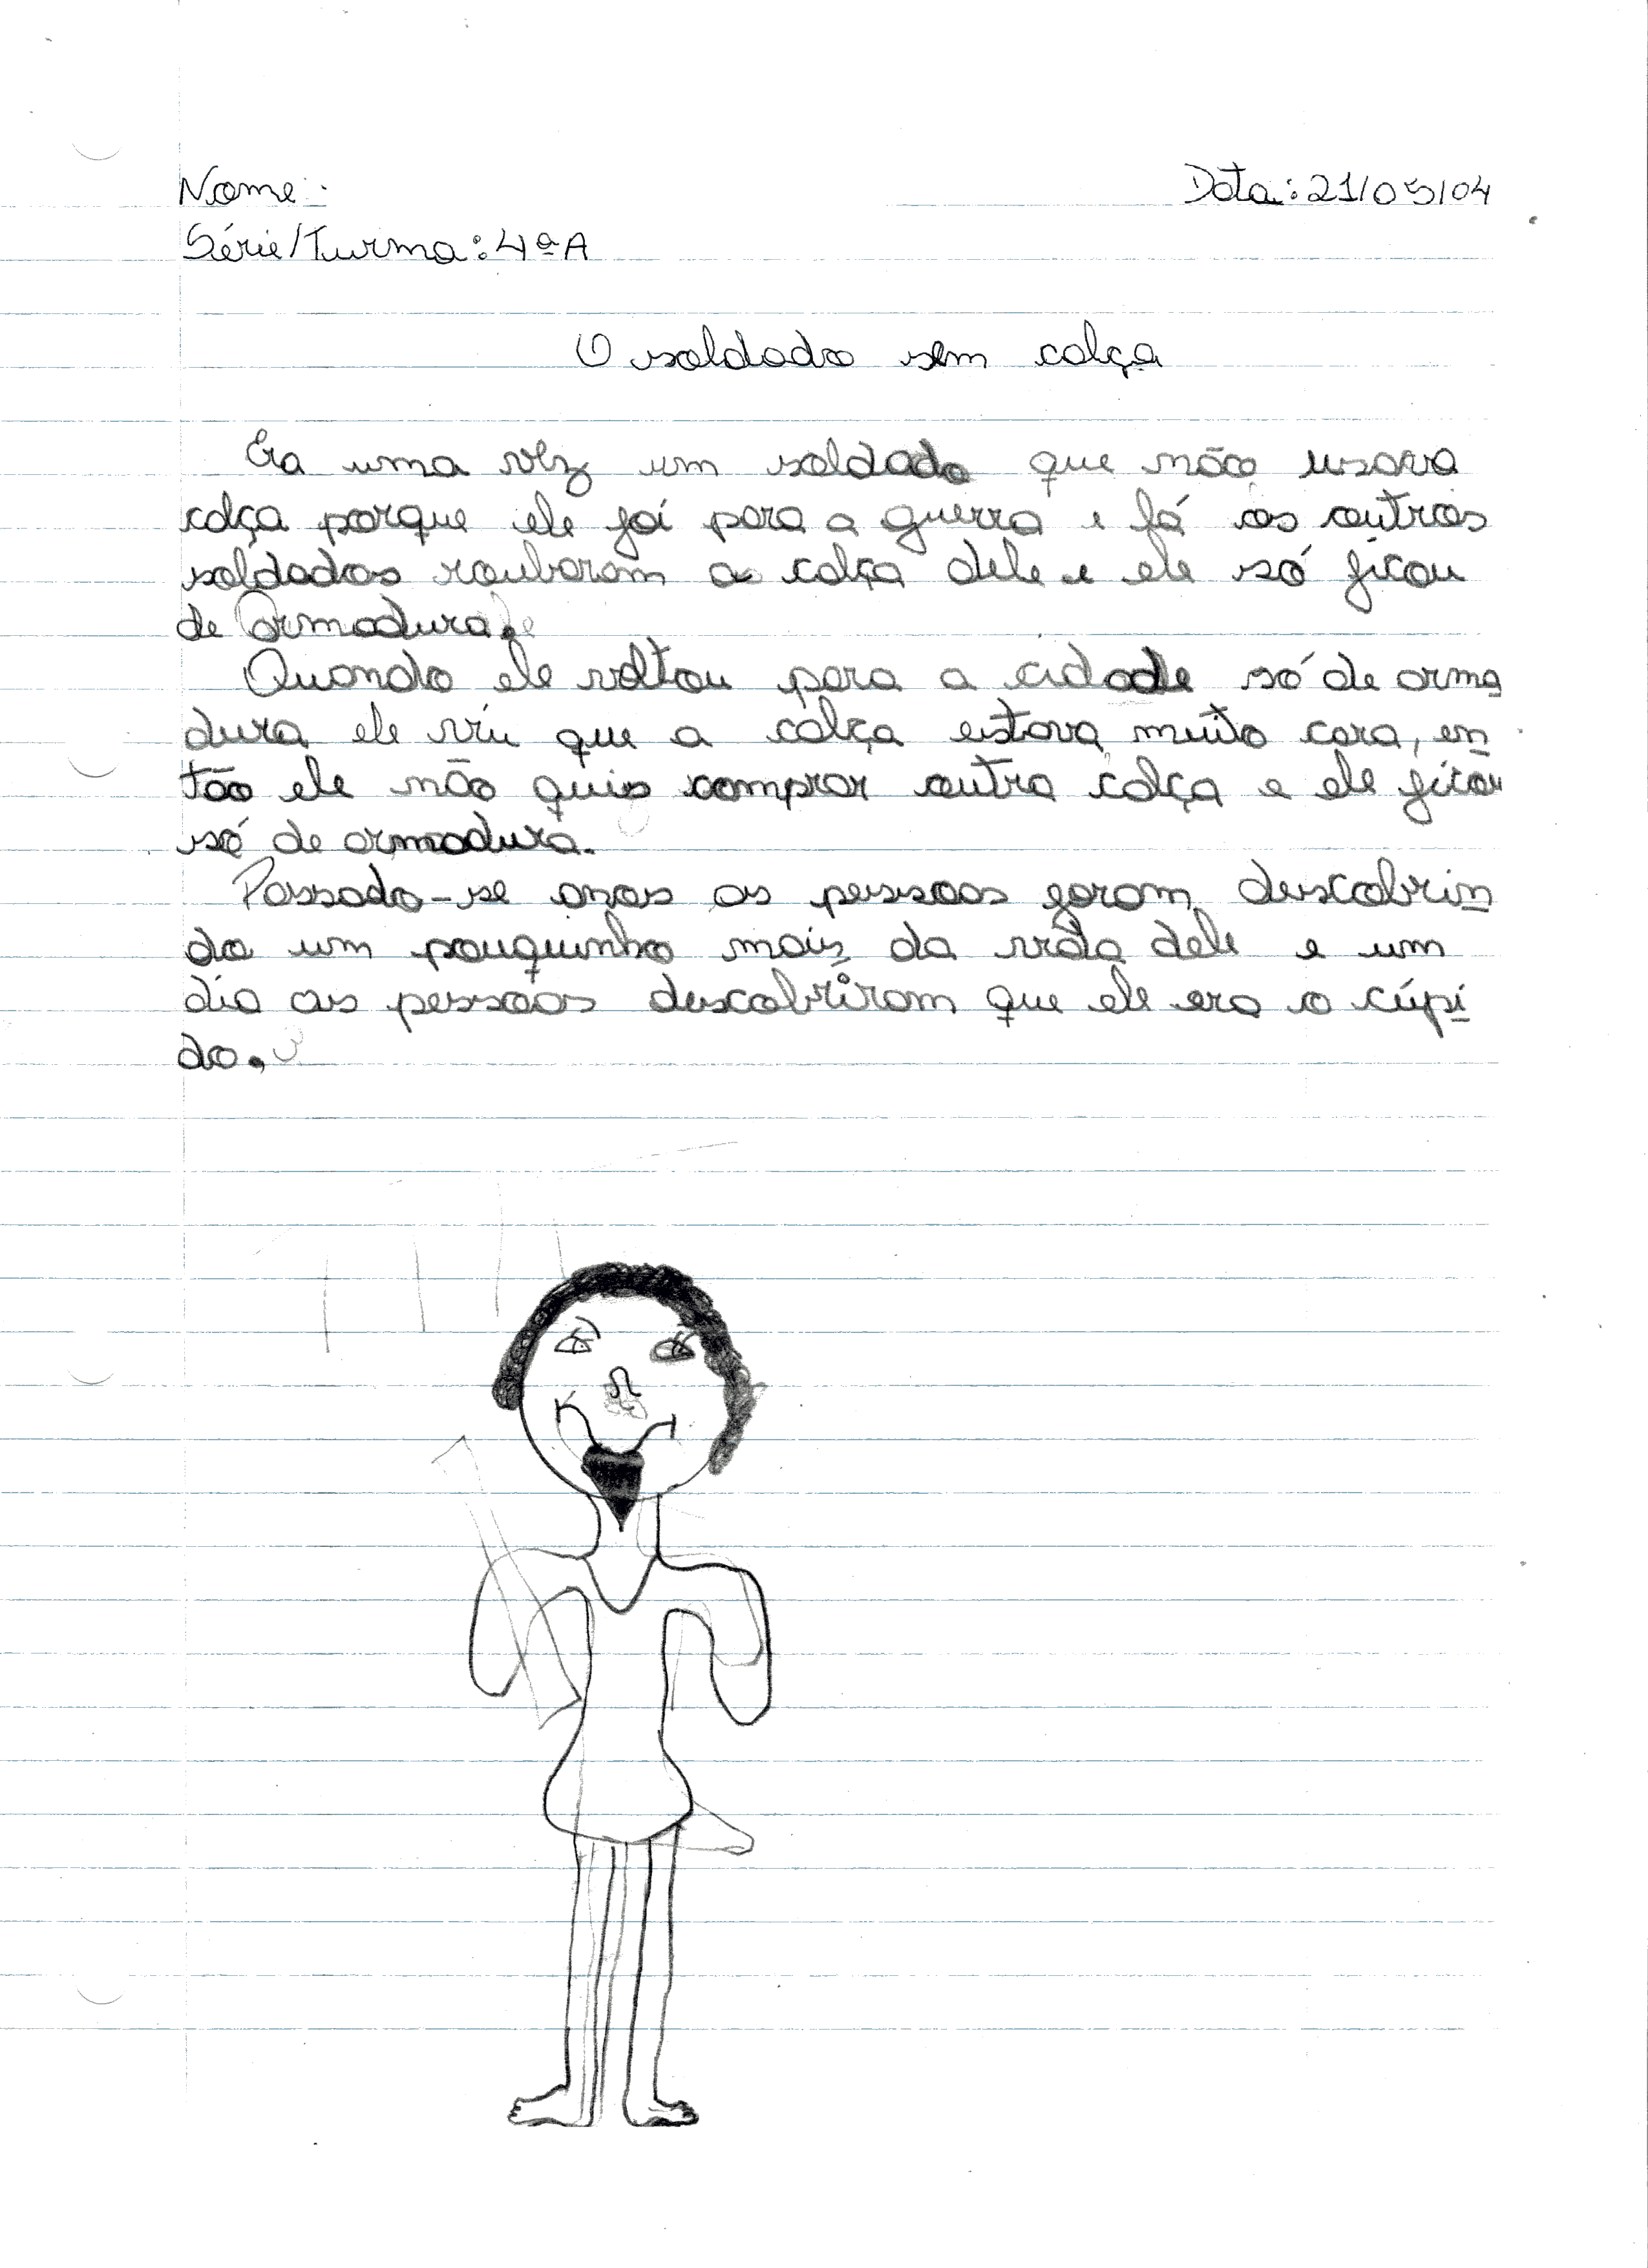 Nome:
Data: 21/05/04
Série/Turma: 4ª A
O soldado sem calça
Era uma vez um soldado que não usava
calça porque ele foi para a guerra e lá os outros
soldados roubaram a calça dele e ele só ficou
de armadura.
Quando ele voltou para a cidade só de arma
dura ele viu que a calça estava muito cara, en
tão ele não quis comprar outra calça e ele ficou
só de armadura.
Passado-se anos as pessoas foram descobrin
do um pouquinho mais da vida dele e um
dia as pessoas descobriram que ele era o cúpi
do.